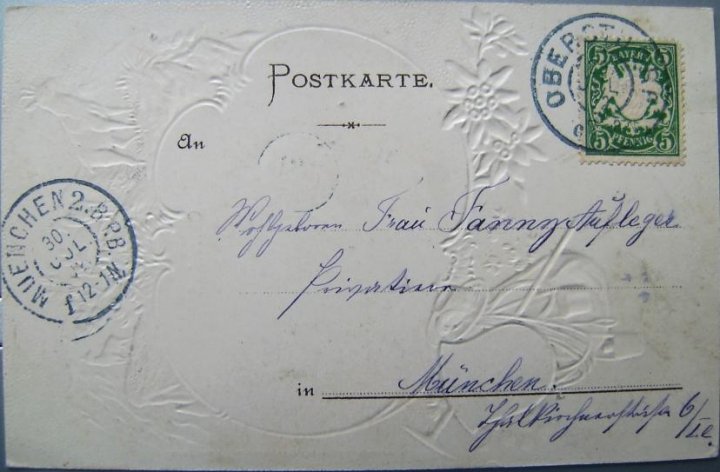 POSTKARTE.
OBERST
BAYERN
5 5
PFENNIG
An
MUENCHEN 2. B.P.B.
30. JUL
12-1N
Wohlgeboren Frau Fanny Aufleger
Privatiere
in München.
Thalkirchnerstraße 6/II.